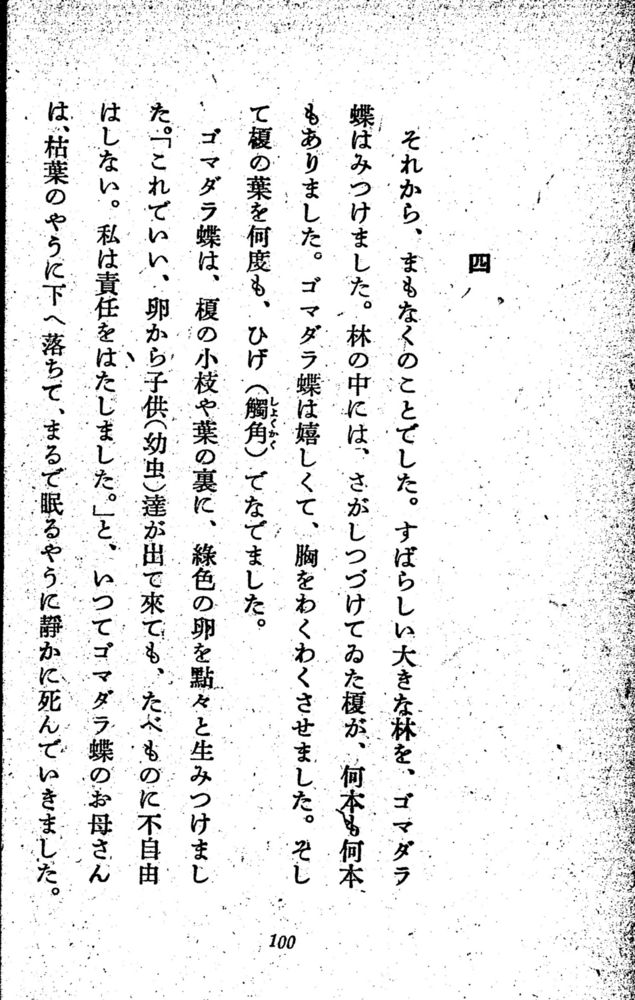 四
それから、まもなくのことでした。すばらしい大きな林を、ゴマダラ
蝶はみつけました。林の中には、さがしつづけてゐた榎が、何本も何本
もありました。ゴマダラ蝶は嬉しくて、胸をわくわくさせました。そし
て榎の葉を何度も、ひげ（觸角）でなでました。
しよくかく
ゴマダラ蝶は、榎の小枝や葉の裏に、綠色の卵を點々と生みつけまし
た。「これでいい、卵から子供（幼虫）達が出て來ても、たべものに不自由
はしない。私は責任をはたしました。」と、いつてゴマダラ蝶のお母さん
は、枯葉のやうに下へ落ちて、まるで眠るやうに靜かに死んでいきました。
100